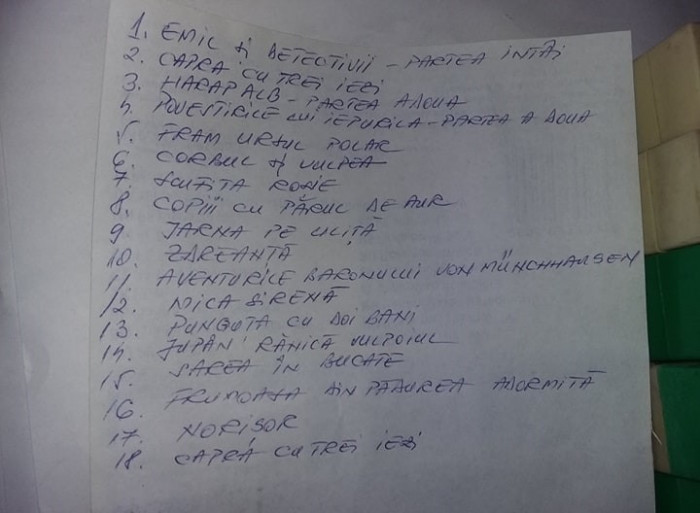 1. EMIL și DETECTIVII - PARTEA ÎNTÂI
2. CAPRA CU TREI IEZI
3. HARAP ALB - PARTEA A DOUA
4. POVESTIRILE LUI IEPURILA - PARTEA A DOUA
5. FRAM URSUL POLAR
6. CORBUL și VULPEA
7. SCUFIȚA ROȘIE
8. COPIII CU PĂRUL DE AUR
9. IARNA PE ULIȚĂ
10. ZDREANȚĂ
11. AVENTURILE BARONULUI VON MÜNCHHAUSEN
12. MICA SIRENĂ
13. PUNGUȚA CU DOI BANI
14. JUPÂN RĂNICĂ VULPOIUL
15. SAREA ÎN BUCATE
16. FRUMOASA DIN PĂDUREA ADORMITĂ
17. NORIȘOR
18. CAPRĂ CU TREI IEZI